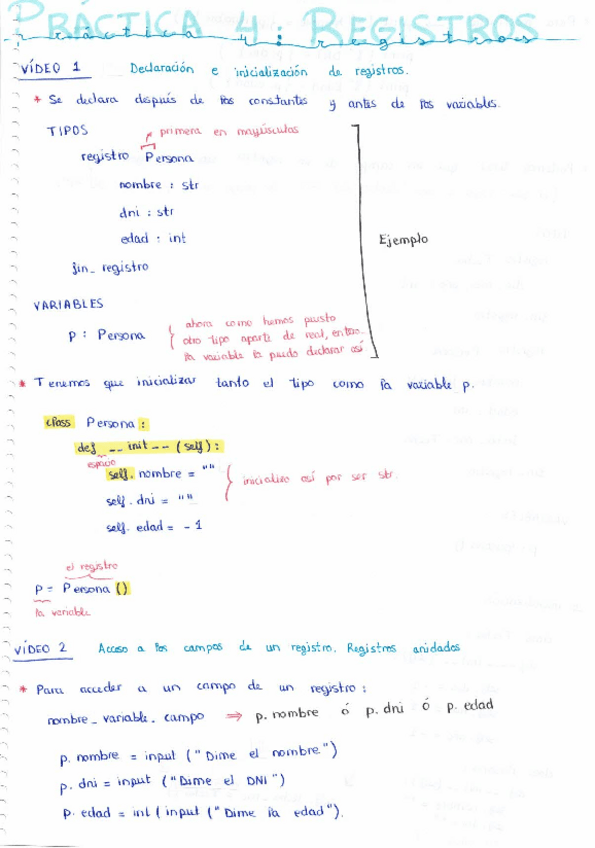 PRÁCTICA 4: REGISTROS
práctica 4: registros
VÍDEO 1 Declaración e inicialización de registros.
* Se declara después de las constantes y antes de las variables.
TIPOS primera en mayúsculas
registro Persona
nombre : str
dni : str
edad : int
Ejemplo
fin_registro
VARIABLES
p : Persona
ahora como hemos puesto
otro tipo aparte de real, entero..
la variable la puedo declarar así
* Tenemos que inicializar tanto el tipo como la variable p.
class Persona :
def __init__(self):
espacio
self.nombre = ""
inicializo así por ser str.
self.dni = ""
self.edad = -1
el registro
P = Persona ()
la variable
VÍDEO 2 Acceso a los campos de un registro. Registros anidados
* Para acceder a un campo de un registro:
nombre_variable.campo ⇒ p.nombre ó p.dni ó p.edad
p.nombre = input ("Dime el nombre")
p.dni = input ("Dime el DNI")
p.edad = int (input ("Dime la edad").